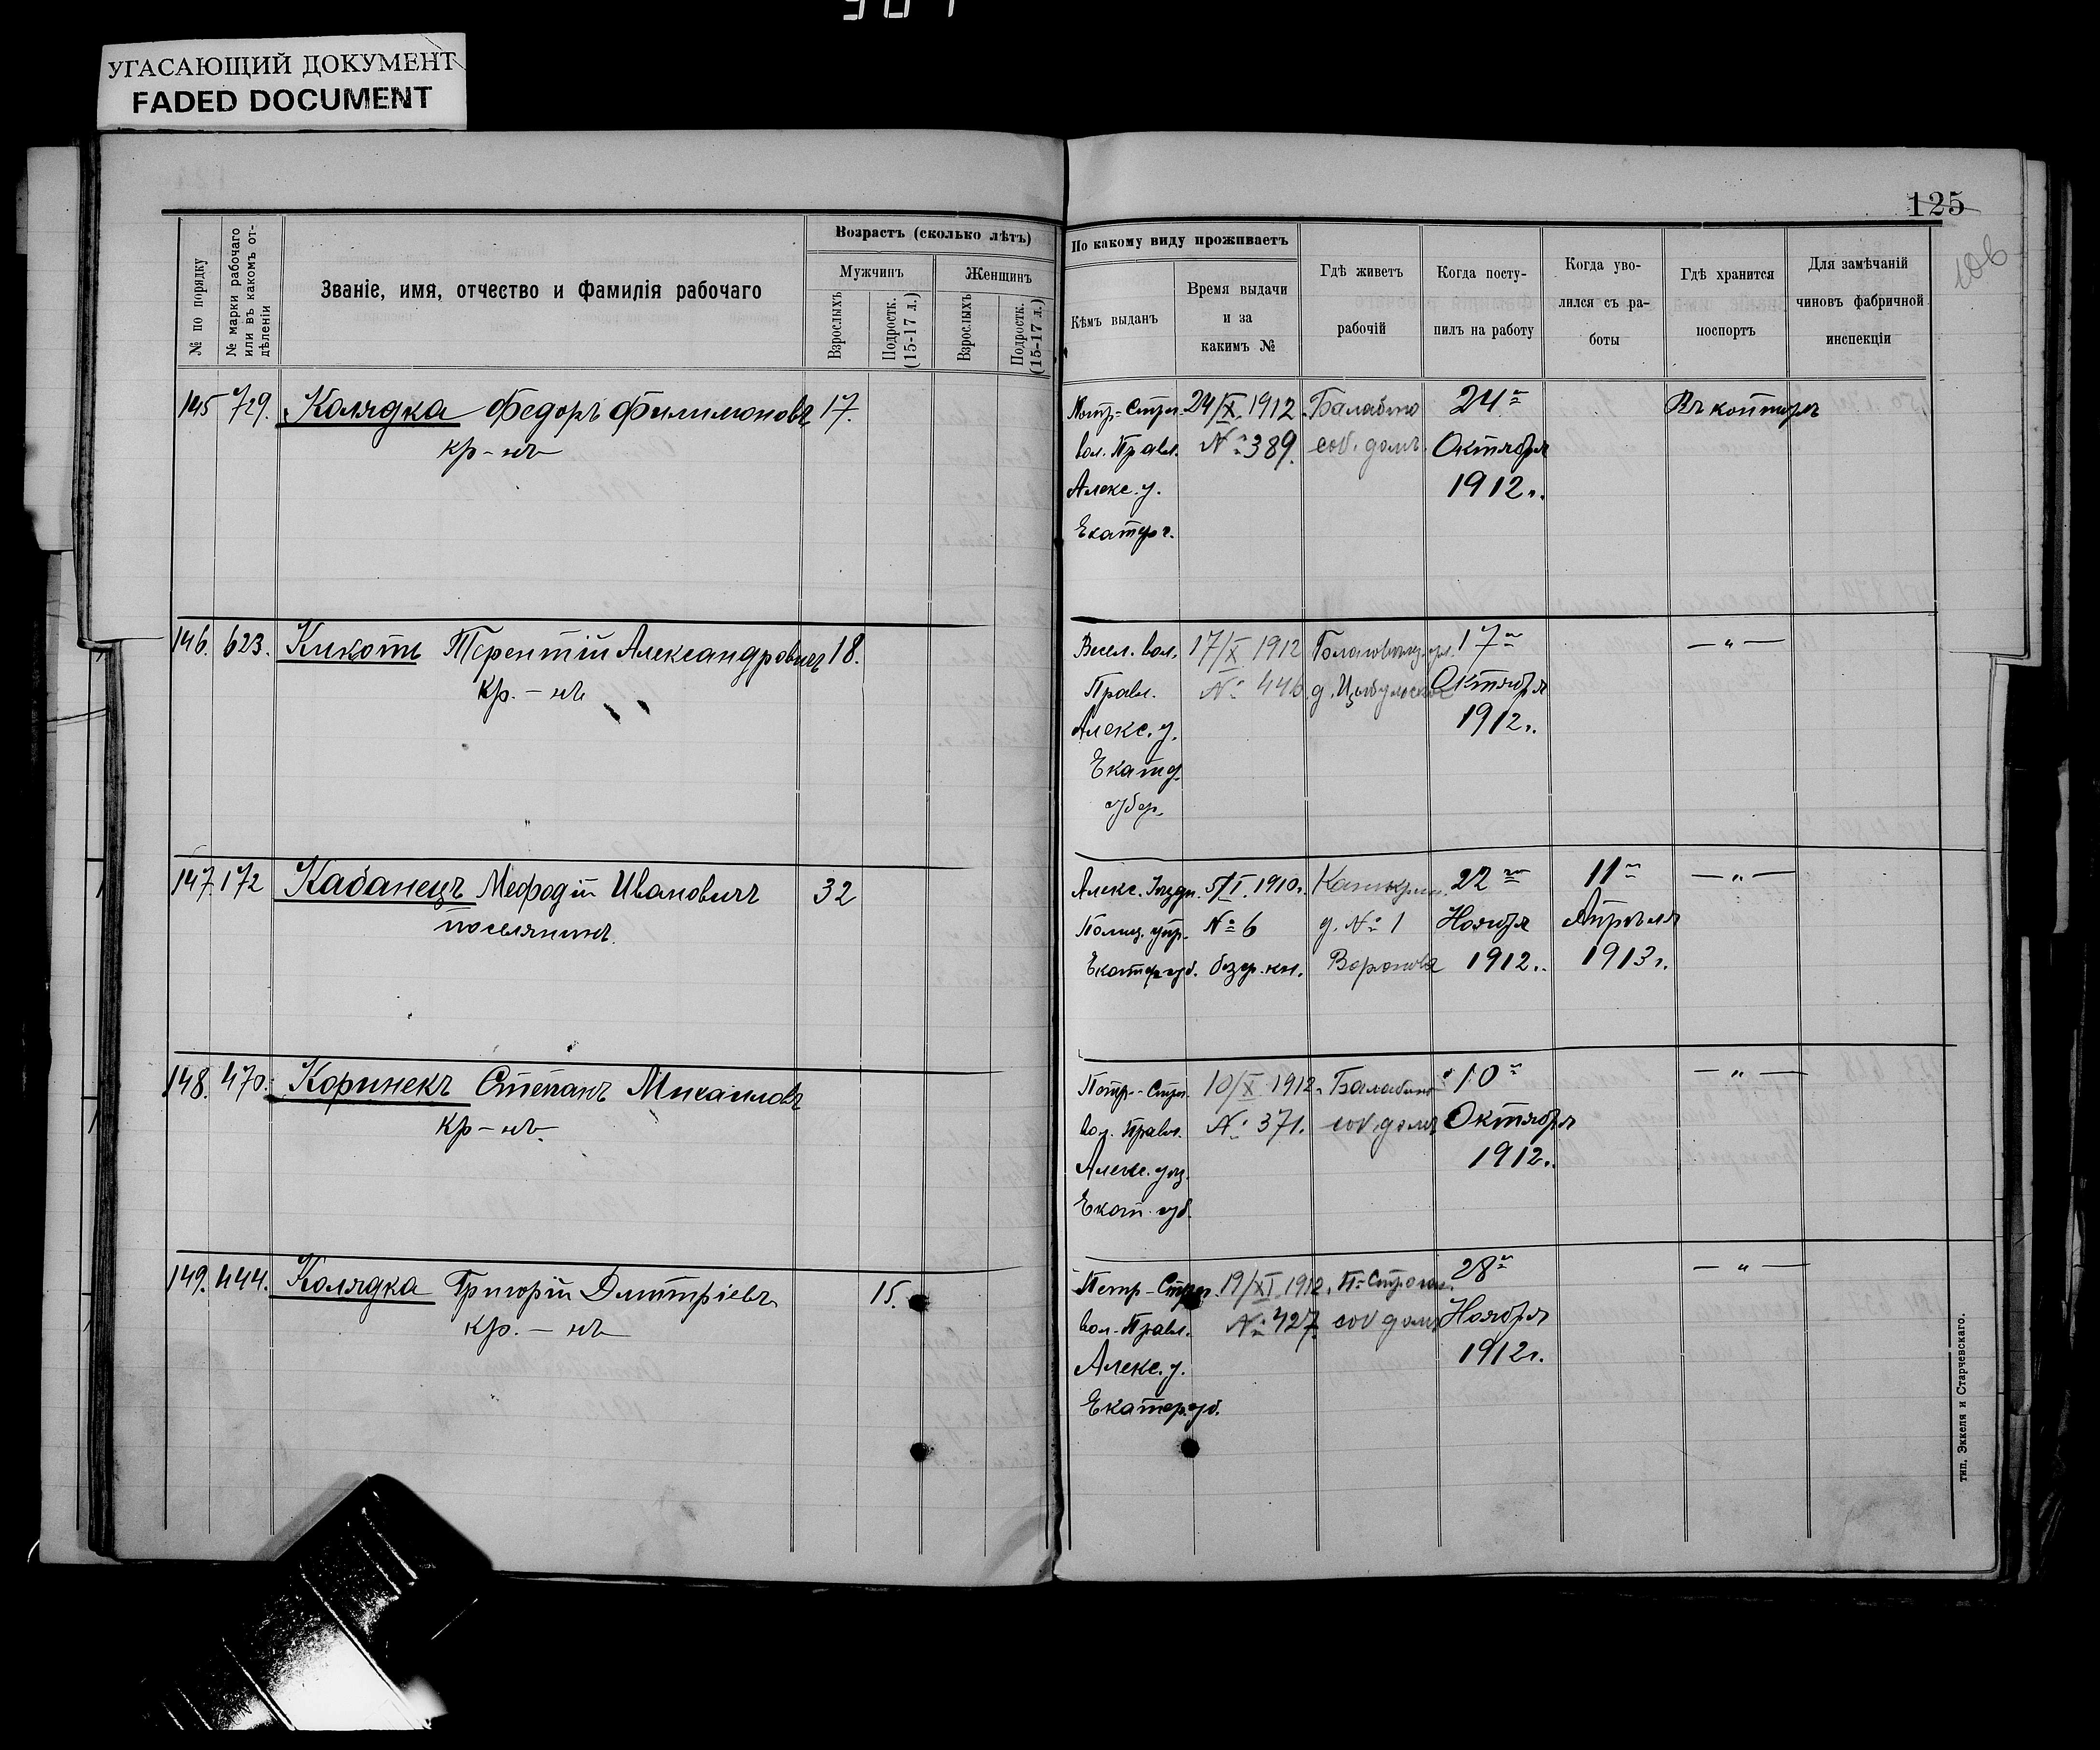 УГАСАЮЩИЙ ДОКУМЕНТ
FADED DOCUMENT
125
106
№ по порядку
№ марки рабочаго
или въ какомъ от-
дѣленіи
Званіе, имя, отчество и фамилія рабочаго
Возрастъ (сколько лѣтъ)
Мужчинъ
Женщинъ
Взрослыхъ
Подростк.
(15-17 л.)
Взрослыхъ
Подростк.
(15-17 л.)
По какому виду проживаетъ
Кѣмъ выданъ
Время выдачи
и за
какимъ №
Гдѣ живетъ
рабочій
Когда посту-
пилъ на работу
Когда уво-
лился съ ра-
боты
Гдѣ хранится
поспортъ
Для замѣчаній
чиновъ фабричной
инспекціи
145 729. Колядка Федоръ Филимоновъ 17.
кр-нъ
Петр-Стрг. 24/X 1912 Балабино 24го Въ конторѣ
вол. Правл. № 389. соб. домъ. Октября
Алекс. у. 1912 г.
Екатер г.
146. 623. Кикоть Терентій Александровичъ 18.
кр.-нъ
Весел. вол. 17/X 1912 17го — „ —
Правл. № 446 д. Октября
Алекс. у. 1912 г.
Екатер.
губер.
147. 172 Кабанецъ Мефодій Ивановичъ 32
поселянинъ.
Алекс. Уѣздн. 5/I 1910 г. 22го 11го — „ —
Полиц. упр. № 6 д. № 1 Ноября Апрѣля
Екатер губ. безер. кн. Воронова 1912 г. 1913 г.
148. 470. Коринекъ Степанъ Михаиловъ
кр-нъ
Петр-Стрг. 10/X 1912 г. Балабино 10го — „ —
вол. Правл. № 371. соб. домъ Октября
Алекс. уѣз. 1912 г.
Екат. губ.
149. 444. Колядка Григорій Дмитріевъ 15.
кр.-нъ
Петр-Строг. 19/XI 1912. П-Строган. 28го — „ —
вол-Правл. № 427 соб домъ Ноября
Алекс. у. 1912 г.
Екатер. губ.
тип. Эккеля и Старчевскаго.